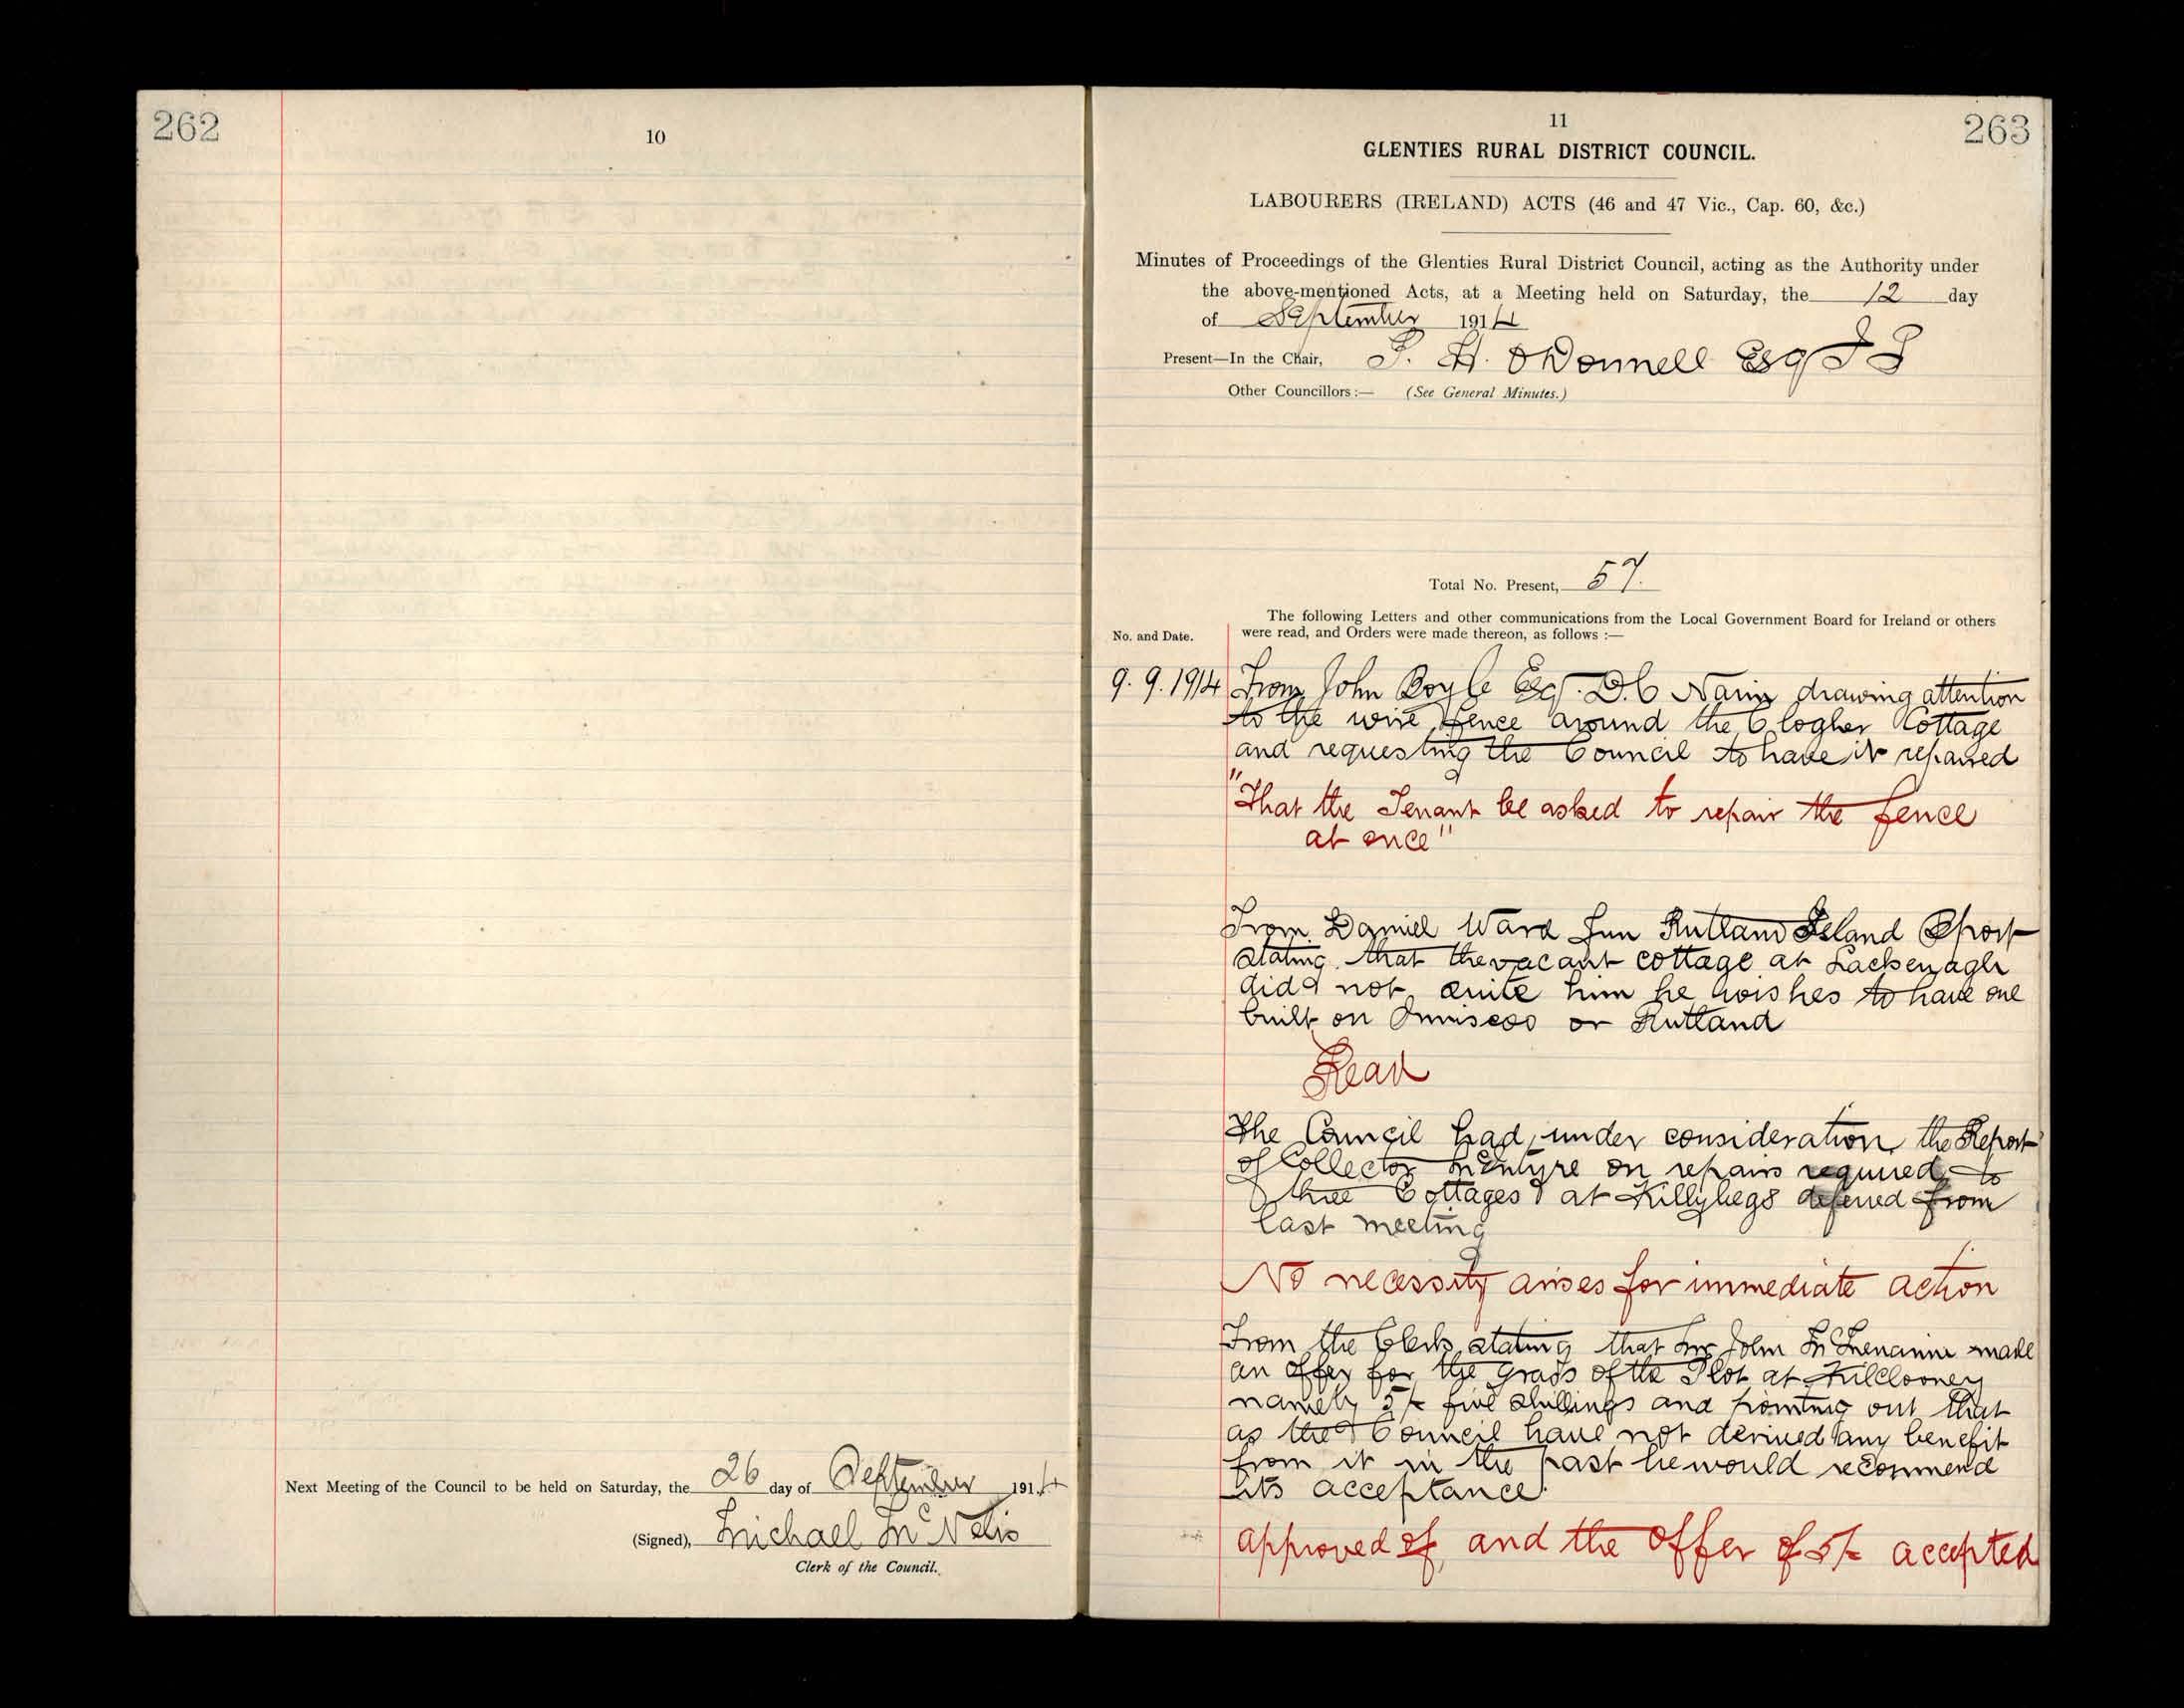 262
10
Next Meeting of the Council to be held on Saturday, the 26 day of September 1914
(Signed), Michael McNelis
Clerk of the Council.
263
11
GLENTIES RURAL DISTRICT COUNCIL.
LABOURERS (IRELAND) ACTS (46 and 47 Vic., Cap. 60, &c.)
Minutes of Proceedings of the Glenties Rural District Council, acting as the Authority under
the above-mentioned Acts, at a Meeting held on Saturday, the 12 day
of September 1914
Present—In the Chair, P. H. O'Donnell Esq J P
Other Councillors :— (See General Minutes.)
Total No. Present, 57.
The following Letters and other communications from the Local Government Board for Ireland or others
No. and Date. were read, and Orders were made thereon, as follows :—
9.9.1914 From John Boyle Esq. D.C Narin drawing attention
to the wire fence around the Clogher Cottage
and requesting the Council to have it repaired
"That the Tenant be asked to repair the fence
at once"
From Daniel Ward Jun Rutland Island
stating that the vacant cottage at Lackenagh
did not suite him he wishes to have one
built on or Rutland
Read
The Council had under consideration the Report
of Collector McEntyre on repairs required to
three Cottages at Killybegs deferred from
last meeting
No necessity arises for immediate action
From the Clerk stating that Mr John made
an offer for the grass of the Plot at Kilclooney
namely 5/- five shillings and pointing out that
as the Council have not derived any benefit
from it in the past he would recommend
its acceptance.
approved of, and the offer of 5/- accepted